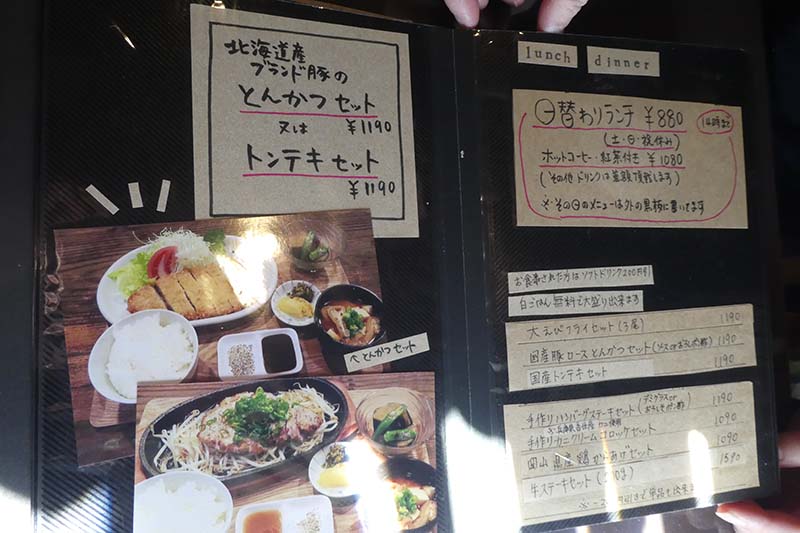 北海道産
ブランド豚の
とんかつセット
又は ¥1190
トンテキセット
¥1190
↖とんかつセット
lunch dinner
日替わりランチ ¥880
14時まで
(土・日・祝休み)
ホットコーヒー・紅茶付き ¥1080
(その他ドリンクは差額頂戴します)
※その日のメニューは外の黒板に書いてます
お食事された方はソフトドリンク200円引
白ごはん 無料で大盛り出来ます
大えびフライセット(3尾) 1190
国産豚ロースとんかつセット(ソースorおろしポン酢) 1190
国産トンテキセット 1190
手作りハンバーグステーキセット(デミグラスor おろしポン酢) 1190
手作りカニクリームコロッケセット 1090
岡山県産鶏からあげセット 1090
牛ステーキセット 1590